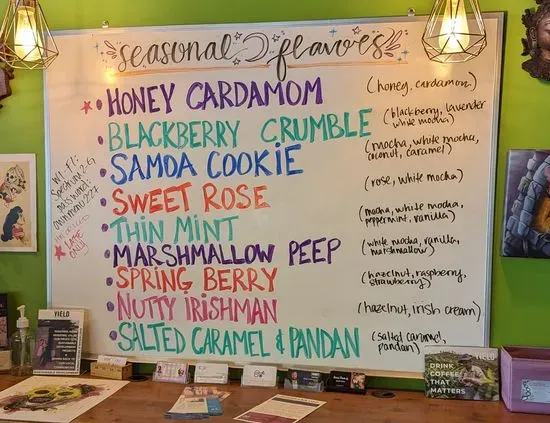 seasonal flavors
HONEY CARDAMOM (honey, cardamom)
BLACKBERRY CRUMBLE (blackberry, lavender
white mocha)
SAMOA COOKIE (mocha, white mocha,
coconut, caramel)
SWEET ROSE (rose, white mocha)
THIN MINT (mocha, white mocha,
peppermint, vanilla)
MARSHMALLOW PEEP (white mocha, vanilla,
marshmallow)
SPRING BERRY (hazelnut, raspberry,
strawberry)
NUTTY IRISHMAN (hazelnut, irish cream)
SALTED CARAMEL & PANDAN (salted caramel,
pandan)
WI-FI:
LATTE
ONLY
YIELD
YIELD
DRINK
COFFEE
THAT
MATTERS